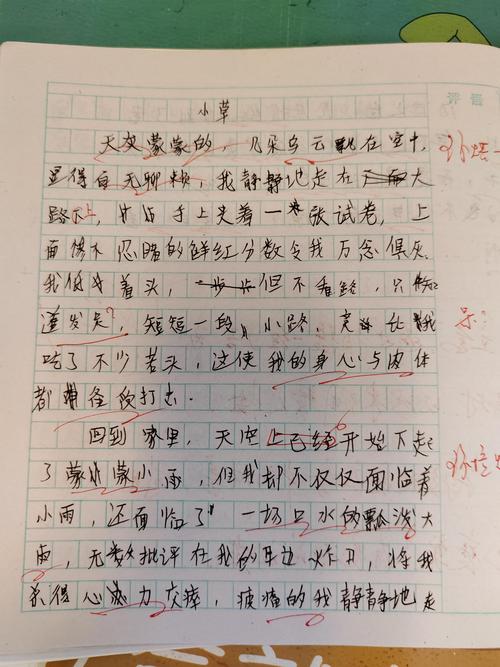 小草
天灰蒙蒙的，几朵乌云飘在空中，
显得百无聊赖，我静静地走在大
路上，手上夹着一张试卷，上
面惨不忍睹的鲜红分数令我万念俱灰
我低着头，一步步但不看路，只知
道发呆？，短短一段小路，竟让我
吃了不少苦头，这使我的身心与肉体
都打击．
回到家里，天空上已经开始下起
了蒙蒙小雨，但我却不仅仅面临着
小雨，还面临了一场口水的瓢泼大
雨，无数批评在我的耳边炸开，将我
杀得心力交瘁，疲惫的我静静地走
评语